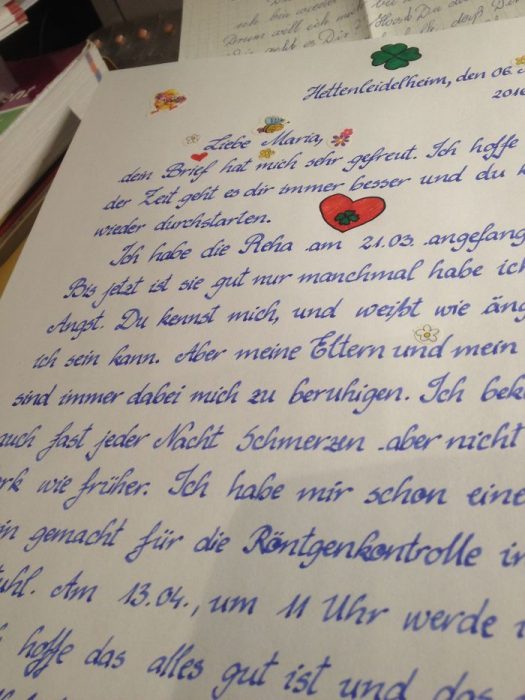 Hettenleidelheim, den 06.
Liebe Maria,
dein Brief hat mich sehr gefreut. Ich hoffe
der Zeit geht es dir immer besser und du
wieder durchstarten.
Ich habe die Reha am 21.03. angefang
Bis jetzt ist sie gut nur manchmal habe ich
Angst. Du kennst mich, und weißt wie äng
ich sein kann. Aber meine Eltern und mein
sind immer dabei mich zu beruhigen. Ich bek
auch fast jeder Nacht Schmerzen aber nicht
rk wie früher. Ich habe mir schon eine
in gemacht für die Röntgenkontrolle in
uhl. Am 13.04., um 11 Uhr werde
hoffe das alles gut ist und das